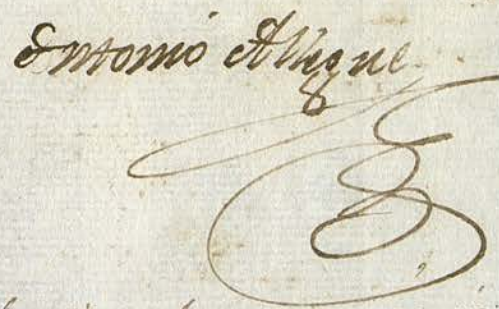 Antonio Allegue